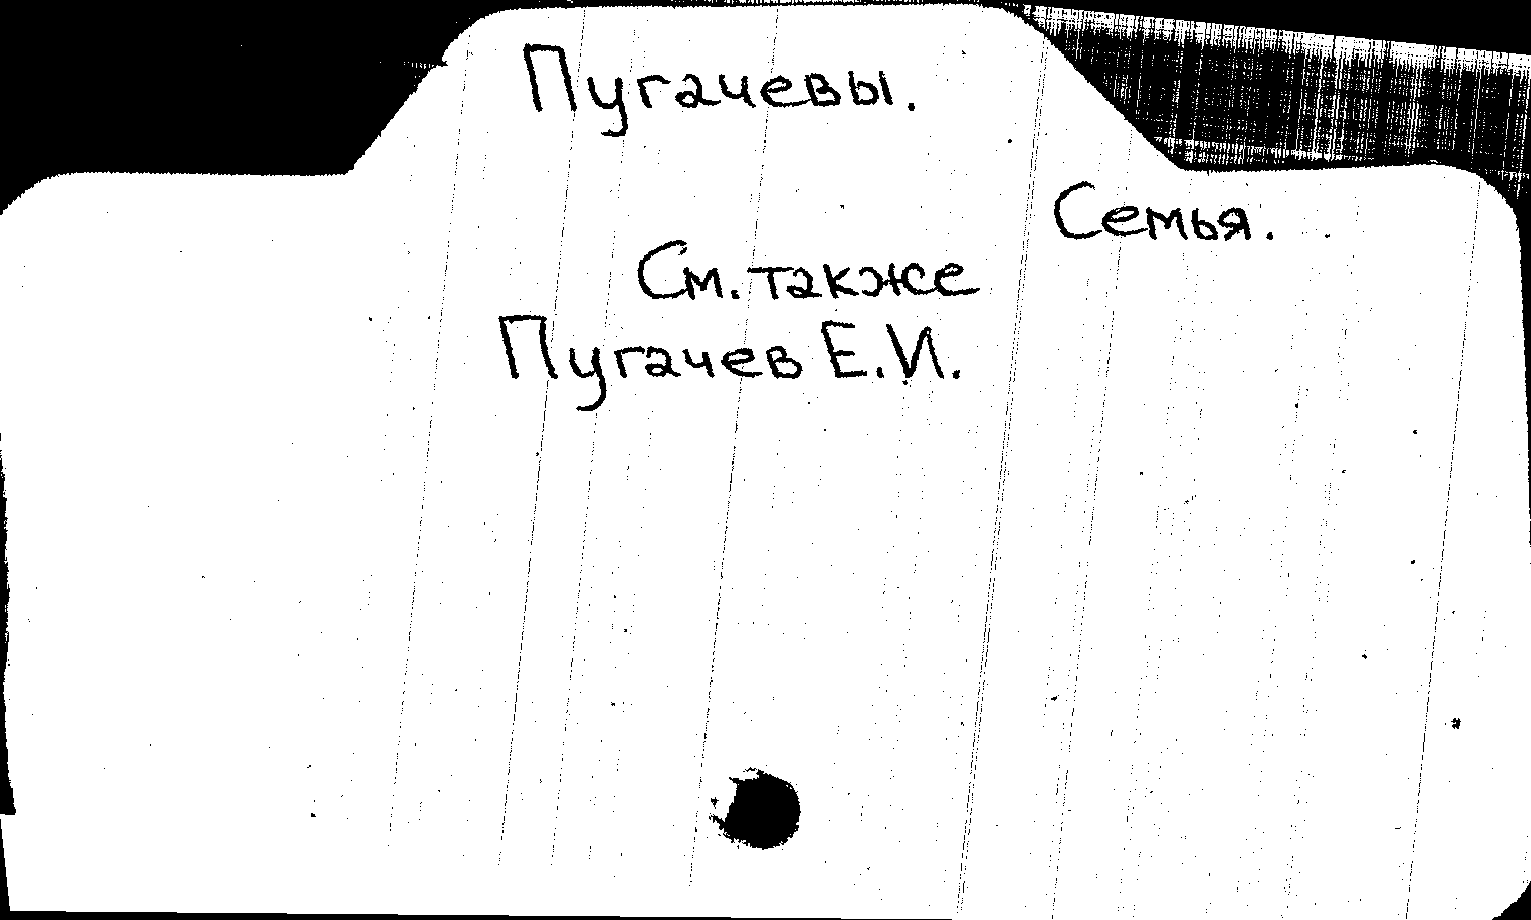 Пугачевы.
Семья.
См. также
Пугачев Е.И.